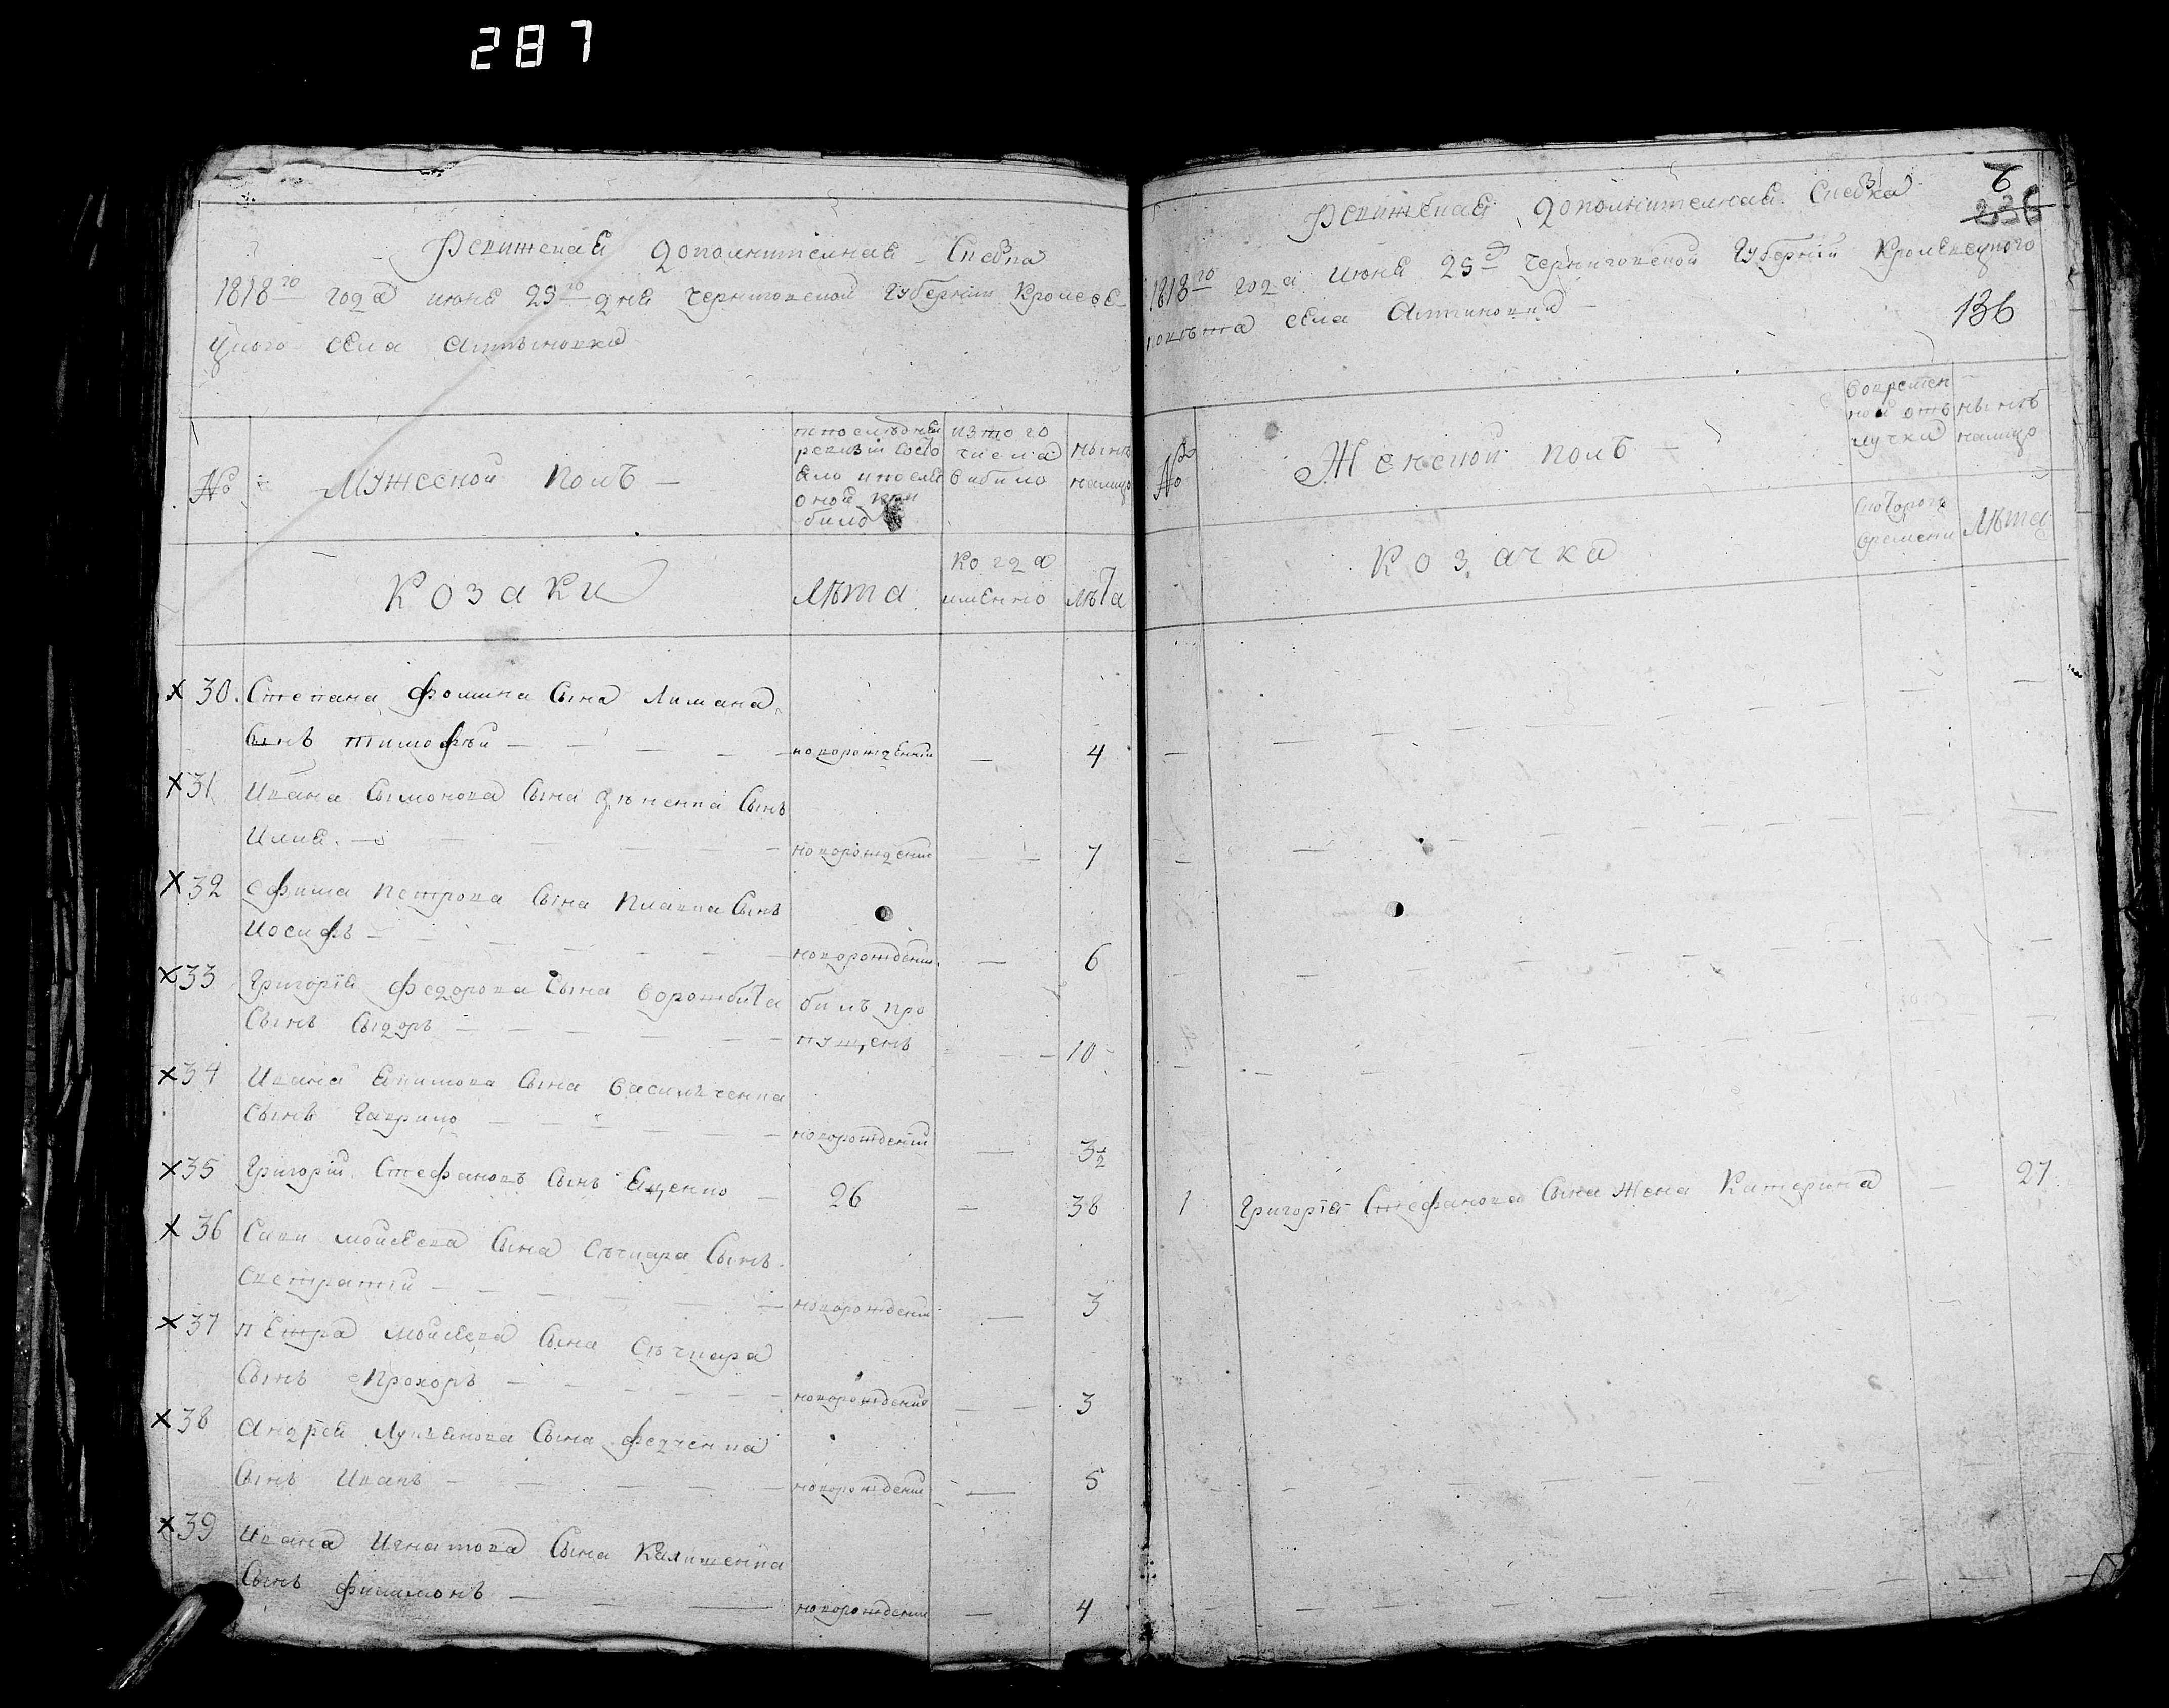 287
Ревижская дополнителная Сказка
1818го года июня 29го дня черниговской Губернии Кролеве
цкого села Алтыновки
№
Мужеской полъ
по последней
ревизии состо
яло и после
оной при
было
изтого
числа
выбыло
нынѣ
налицо
Козаки
лѣта
когда
именно
лѣта
30. Степана Фомина Сына Лимана
Сынъ тимофѣй — новорожденный — 4
31 Ивана Сымонова Сына Сынъ
Илия — новорожденный — 7
32 Ефима Петрова Сына Сынъ
Иосифъ — новорожденный — 6
33 Григорія Федорова Сына ворожбита билъ про
Сынъ Сыдоръ — пущенъ — 10
34 Ивана Сына василченка
Сынъ Гаврило — новорожденный — 3½
35 Григорій Стефановъ Сынъ Яценко — 26 — 38
36 Сави мойсеева Сына Сѣчкара Сынъ
Евстратий — новорожденный — 3
37 петра мойсеева Сына Сѣчкара
Сынъ Прохоръ — новорожденный — 3
38 Андрея Лукянова Сына федченка
Сынъ Иванъ — новорожденный — 5
39 Ивана Игнатова Сына
Сынъ филимонъ — новорожденный — 4
6
236
Ревижская дополнителная Сказка
1818го года июня 29д черниговской Губернии Кролевецкого
повѣта села Алтиновки
136
№
Женской полъ
во времен
ной отъ
лучки
нынѣ
налицо
Козачки
с которого
времени
лѣта
1 Григорія Стефанова Сына Жена Катерина — 27